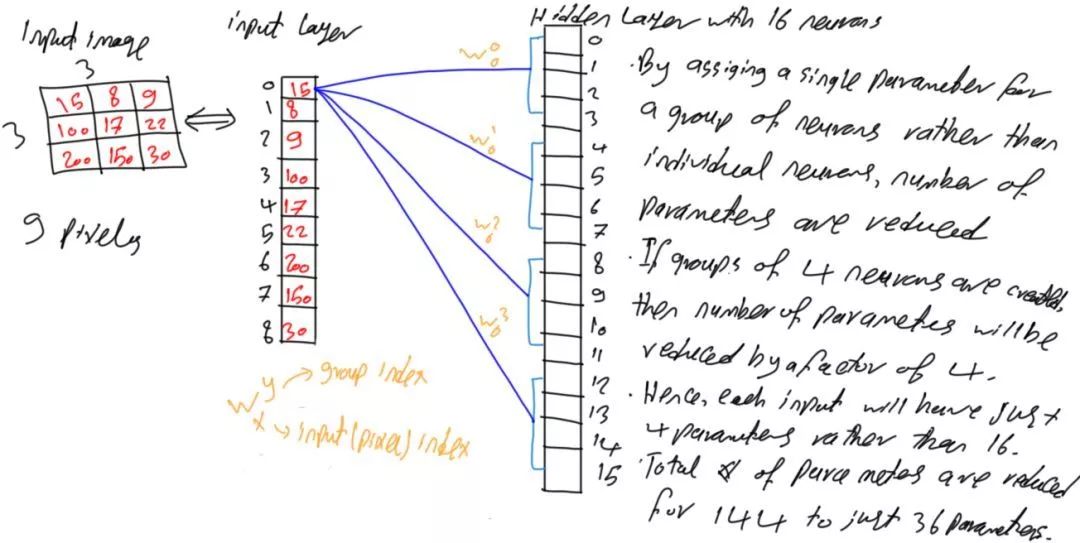 Input image
3
3
15 8 9
100 17 22
200 150 30
9 pixels
input Layer
0 15
1 8
2 9
3 100
4 17
5 22
6 200
7 150
8 30
w⁰₀
w¹₀
w²₀
w³₀
w y → group index
x → input (pixel) index
Hidden Layer with 16 neurons
0
1
2
3
4
5
6
7
8
9
10
11
12
13
14
15
· By assiging a single parameter for
a group of neurons rather than
individual neurons, number of
parameters are reduced
· If groups of 4 neurons are created,
then number of parameters will be
reduced by a factor of 4.
· Hence, each input will have just
4 parameters rather than 16.
· Total # of parameters are reduced
for 144 to just 36 parameters.